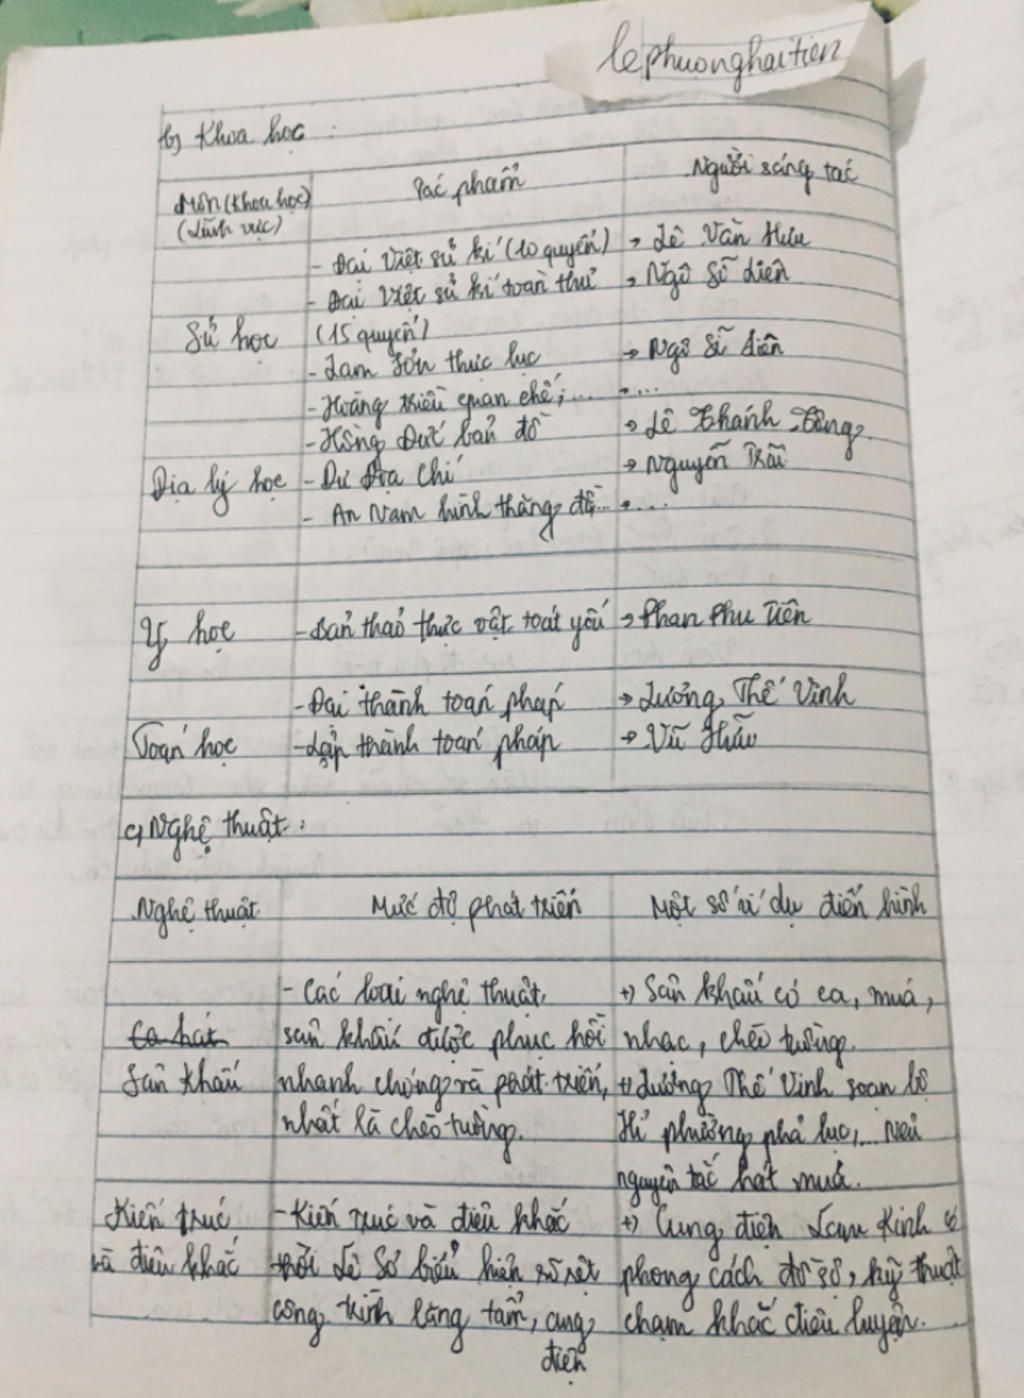 lephuonghaitien
b) Khoa học :
Môn (khoa học) Tác phẩm Người sáng tác
(Lĩnh vực)
- Đại Việt sử kí (10 quyển) → Lê Văn Hưu
- Đại Việt sử kí toàn thư → Ngô Sĩ Liên
Sử học (15 quyển)
- Lam Sơn thực lục → Ngô Sĩ Liên
- Hoàng triều quan chế,... → ...
- Hồng Đức bản đồ → Lê Thánh Tông
Địa lý học - Dư Địa Chí → Nguyễn Trãi
- An Nam hình thăng đồ... → ...
Y học - Bản thảo thực vật toát yếu → Phan Phu Tiên
- Đại thành toán pháp → Lương Thế Vinh
Toán học - Lập thành toán pháp → Vũ Hữu
c) Nghệ thuật :
Nghệ thuật Mức độ phát triển Một số ví dụ điển hình
- Các loại nghệ thuật +) Sân khấu có ca, múa,
Ca hát sân khấu được phục hồi nhạc, chèo tuồng.
Sân khấu nhanh chóng và phát triển, +) Lương Thế Vinh soạn bộ
nhất là chèo tuồng. Hí phường phả lục,... nêu
nguyên tắc hát múa.
Kiến trúc - Kiến trúc và điêu khắc +) Cung điện Lam Kinh có
và điêu khắc thời Lê Sơ biểu hiện rõ rệt phong cách đồ sộ, kỹ thuật
công trình lăng tẩm, cung chạm khắc điêu luyện.
điện